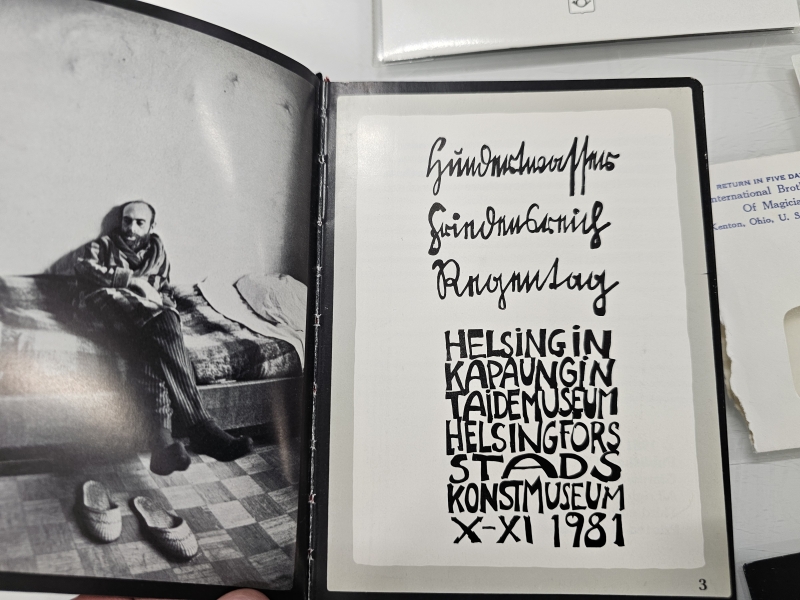 Hundertwasser
Friedensreich
Regentag
HELSINGIN
KAPAUNGIN
TAIDEMUSEUM
HELSINGFORS
STADS
KONSTMUSEUM
X-XI 1981
3
RETURN IN FIVE DA
nternational Brot
Of Magicia
Kenton, Ohio, U. S